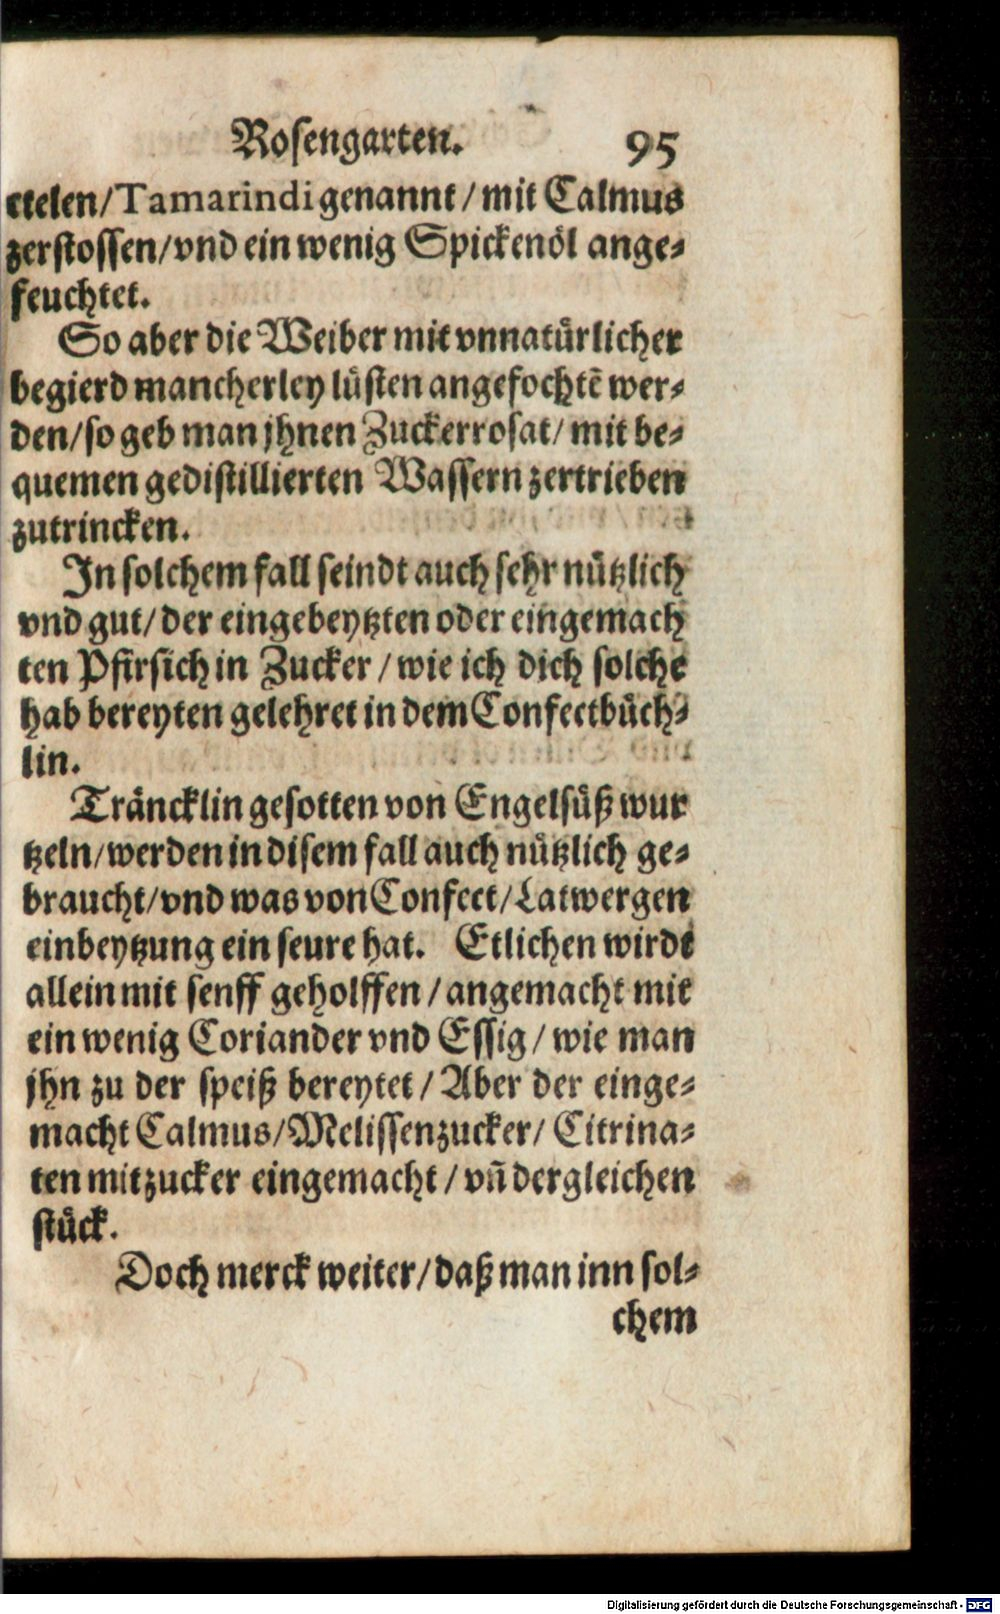 Rosengarten. 95
ctelen/Tamarindi genannt/mit Calmus
zerstossen/vnd ein wenig Spickenöl ange⸗
feuchtet.
So aber die Weiber mit vnnatürlicher
begierd mancherley lüsten angefochtē wer⸗
den/so geb man jhnen Zuckerrosat/mit be⸗
quemen gedistillierten Wassern zertrieben
zutrincken.
In solchem fall seindt auch sehr nützlich
vnd gut/der eingebeytzten oder eingemach
ten Pfirsich in Zucker/wie ich dich solche
hab bereyten gelehret in dem Confectbüch⸗
lin.
Träncklin gesotten von Engelsüß wur
tzeln/werden in disem fall auch nützlich ge⸗
braucht/vnd was von Confect/Latwergen
einbeytzung ein seure hat. Etlichen wirdt
allein mit senff geholffen/angemacht mit
ein wenig Coriander vnd Essig/wie man
jhn zu der speiß bereytet/Aber der einge⸗
macht Calmus/Melissenzucker/Citrina⸗
ten mit zucker eingemacht/vñ dergleichen
stück.
Doch merck weiter/daß man inn sol⸗
chem
Digitalisierung gefördert durch die Deutsche Forschungsgemeinschaft - DFG